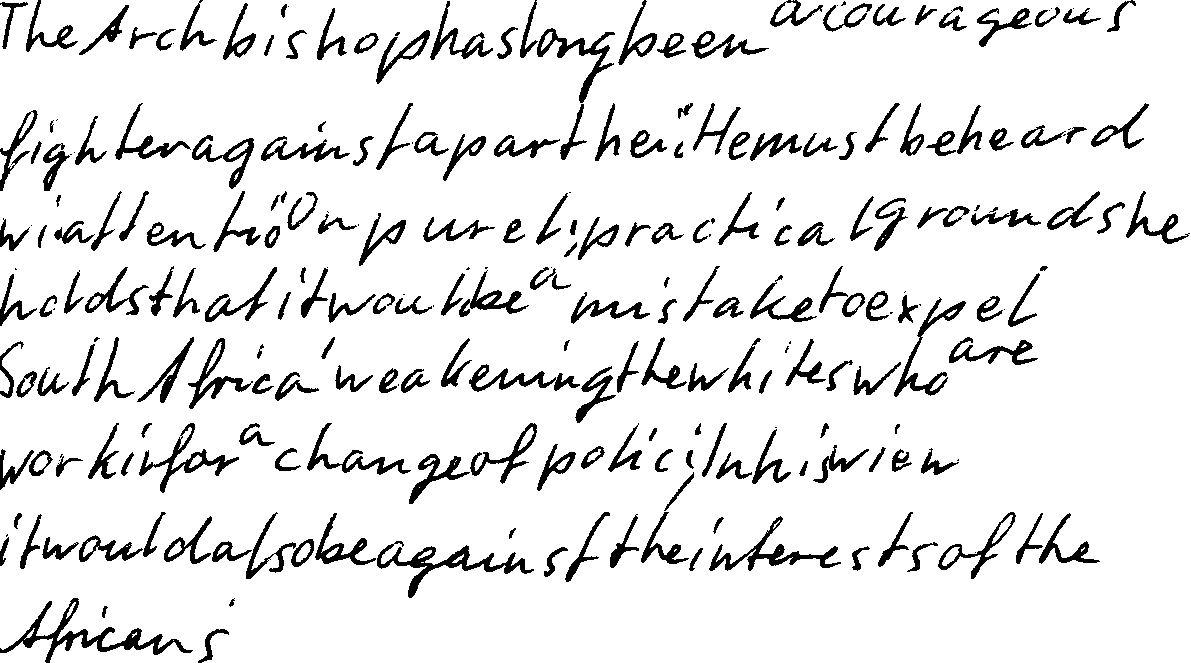 The Archbishop has long been a courageous
fighter against apartheid. He must be heard
with attention. On purely practical grounds he
holds that it would be a mistake to expel
South Africa weakening the whites who are
working for a change of policy. In his view
it would also be against the interests of the
Africans